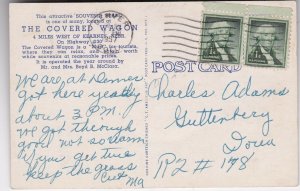 This attractive SOUVENIR
is one of many, located at
THE COVERED WAGON
4 MILES WEST OF KEARNEY, NEBR.
On Highway #30
The Covered Wagon is a "Must" for tourists,
where they can relax and enjoy while
souvenir at reasonable prices.
is operated the year around by
Mr. and Mrs. Boyd B. McClara.
POST CARD
We are at Denver
got here yeatty
about 3 P.M.
we got through
good not so warm
if you get time
keep the grass
Cut Ma
Charles Adams
Guttenberg
Iowa
R2 # 178